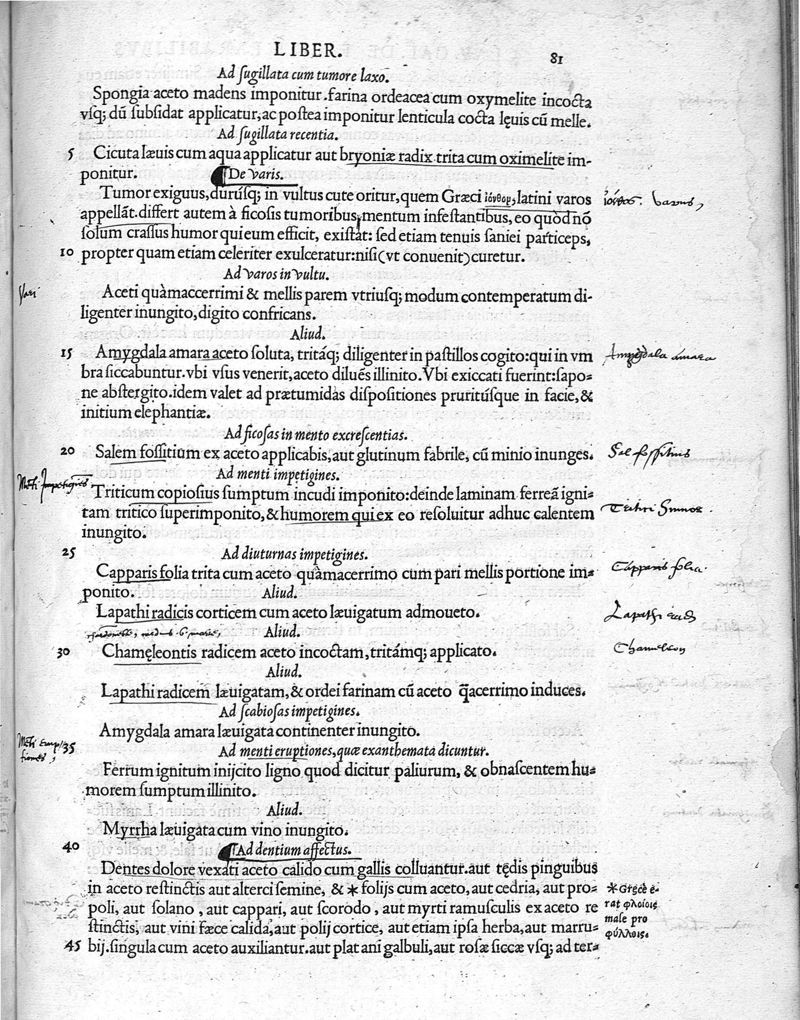 LIBER. 81
Ad sugillata cum tumore laxo.
Spongia aceto madens imponitur.farina ordeacea cum oxymelite incocta
vsq; dũ subsidat applicatur, ac postea imponitur lenticula cocta lęuis cũ melle.
Ad sugillata recentia.
5 Cicuta læuis cum aqua applicatur aut bryoniæ radix trita cum oximelite im-
ponitur. ¶De varis.
Tumor exiguus, durúsq; in vultus cute oritur, quem Græci ἰόνθον, latini varos
ἰόνθος. varus,
appellãt. differt autem à ficosis tumoribus, mentum infestantibus, eo quòd nõ
solum crassus humor qui eum efficit, existãt: sed etiam tenuis saniei particeps,
10 propter quam etiam celeriter exulceratur: nisi (vt conuenit) curetur.
Ad varos in vultu.
Vari
Aceti quàm accerrimi & mellis parem vtriusq; modum contemperatum di-
ligenter inungito, digito confricans.
Aliud.
15 Amygdala amara aceto soluta, tritáq; diligenter in pastillos cogito: qui in vm
Amygdala amara
bra siccabuntur. vbi vsus venerit, aceto dilués illinito. Vbi exiccati fuerint: sapo-
ne abstergito. idem valet ad prætumidas dispositiones pruritúsque in facie, &
initium elephantiæ.
Ad ficosas in mento excrescentias.
20 Salem fossitium ex aceto applicabis, aut glutinum fabrile, cũ minio inunges.
Sal fossitius
Ad menti impetigines.
Menti Impetigines
Triticum copiosius sumptum incudi imponito: deinde laminam ferreã igni-
tam tritico superimponito, & humorem qui ex eo resoluitur adhuc calentem
inungito.
25 Ad diuturnas impetigines.
Capparis folia trita cum aceto quàm acerrimo cum pari mellis portione im-
Capparis folia.
ponito. Aliud.
Lapathi radicis corticem cum aceto læuigatum admoueto.
Lapathi
Aliud.
30 Chamęleontis radicem aceto incoctam, tritámq; applicato.
Chameleon
Aliud.
Lapathi radicem læuigatam, & ordei farinam cũ aceto q̃acerrimo induces.
Ad scabiosas impetigines.
Amygdala amara læuigata continenter inungito.
35 Ad menti eruptiones, quæ exanthemata dicuntur.
Menti Erup/
tiones,
Ferrum ignitum inijcito ligno quod dicitur paliurum, & obnascentem hu-
morem sumptum illinito.
Aliud.
Myrrha læuigata cum vino inungito.
40 ¶Ad dentium affectus.
Dentes dolore vexati aceto calido cum gallis colluantur. aut tędis pinguibus
in aceto restinctis aut alterci semine, & * folijs cum aceto, aut cedria, aut pro-
* Grecè e-
poli, aut solano, aut cappari, aut scorodo, aut myrti ramusculis ex aceto re
rat φλοιοῖς
stinctis, aut vini fæce calida, aut polij cortice, aut etiam ipsa herba, aut marru-
male pro
φύλλοις.
45 bij. singula cum aceto auxiliantur. aut platani galbuli, aut rosæ siccæ vsq; ad ter-